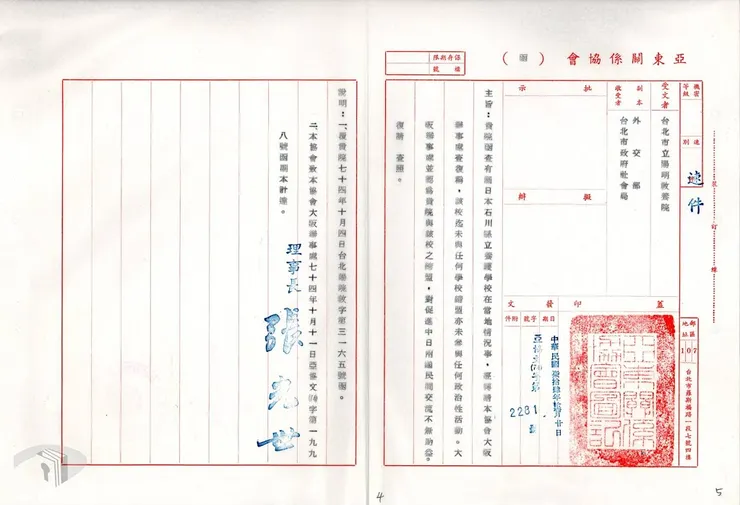 亞東關係協會（函）
保存期限
檔號
機密等級
速別
速件
受文者
台北市立陽明教養院
副本收受者
外交部
台北市政府社會局
批示
擬辦
發文
蓋印
日期
字號
附件
中華民國柒拾肆年拾月廿日
2281
號
郵區
地址
107
台北市羅斯福路一段七號四樓
裝
訂
線
主旨：貴院函查有關日本石川縣立養護學校在當地情況事，經轉請本協會大阪
辦事處查復稱，該校迄未與任何學校締盟亦未參與任何政治性活動。大
阪辦事處並認為貴院與該校之締盟，對促進中日兩國民間交流不無助益。
復請　查照。
說明：一、復貴院七十四年十月四日台北陽院教字第三一六五號函。
二、本協會致本協會大阪辦事處七十四年十月十一日亞協文字第一九九
八號函副本計達。
理事長
張光世
4
5